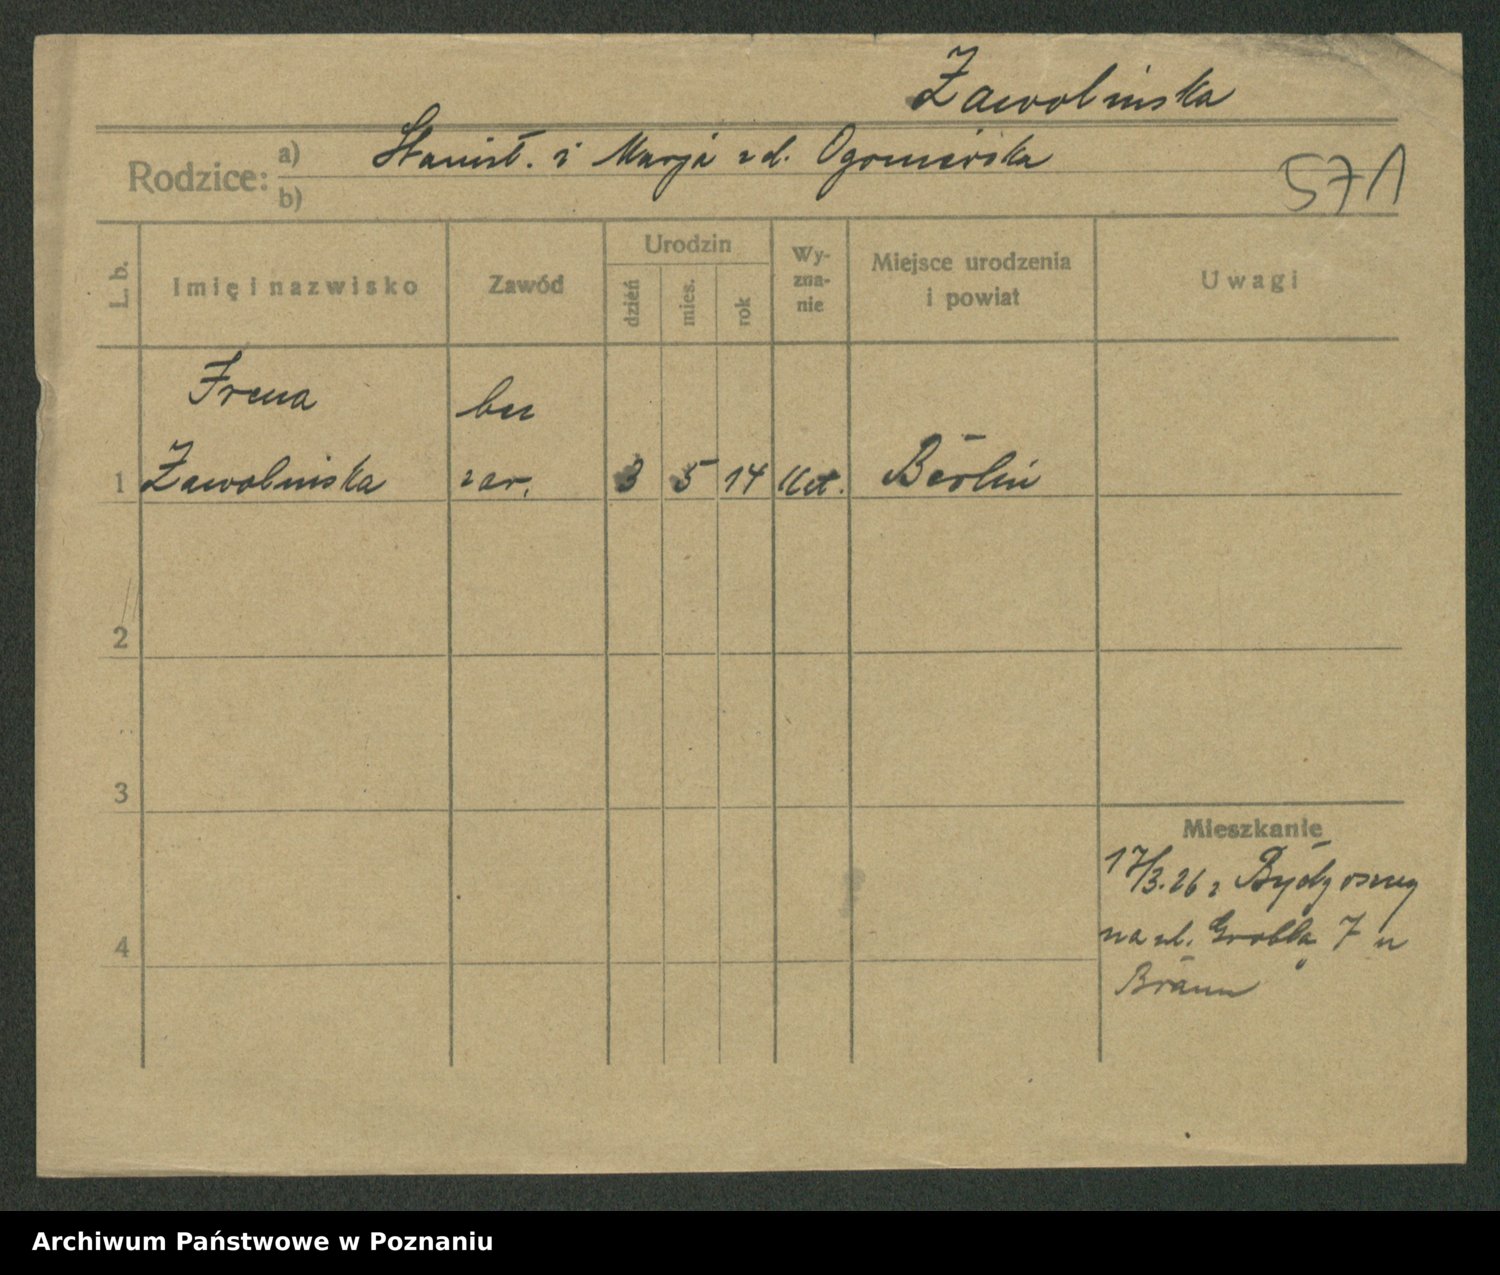 Żawolinska
Rodzice: a) b)
Stanisł. i Marja zd.
571
L. b.
Imię i nazwisko
Zawód
Urodzin
dzień
mies.
rok
Wy-
zna-
nie
Miejsce urodzenia
i powiat
Uwagi
Irena
bez
1 Żawolinska zar. 3 5 14 kat. Berlin
2
3
Mieszkanie
17/3.26 z
na ul. Grobla 7 u
4
Braun
Archiwum Państwowe w Poznaniu